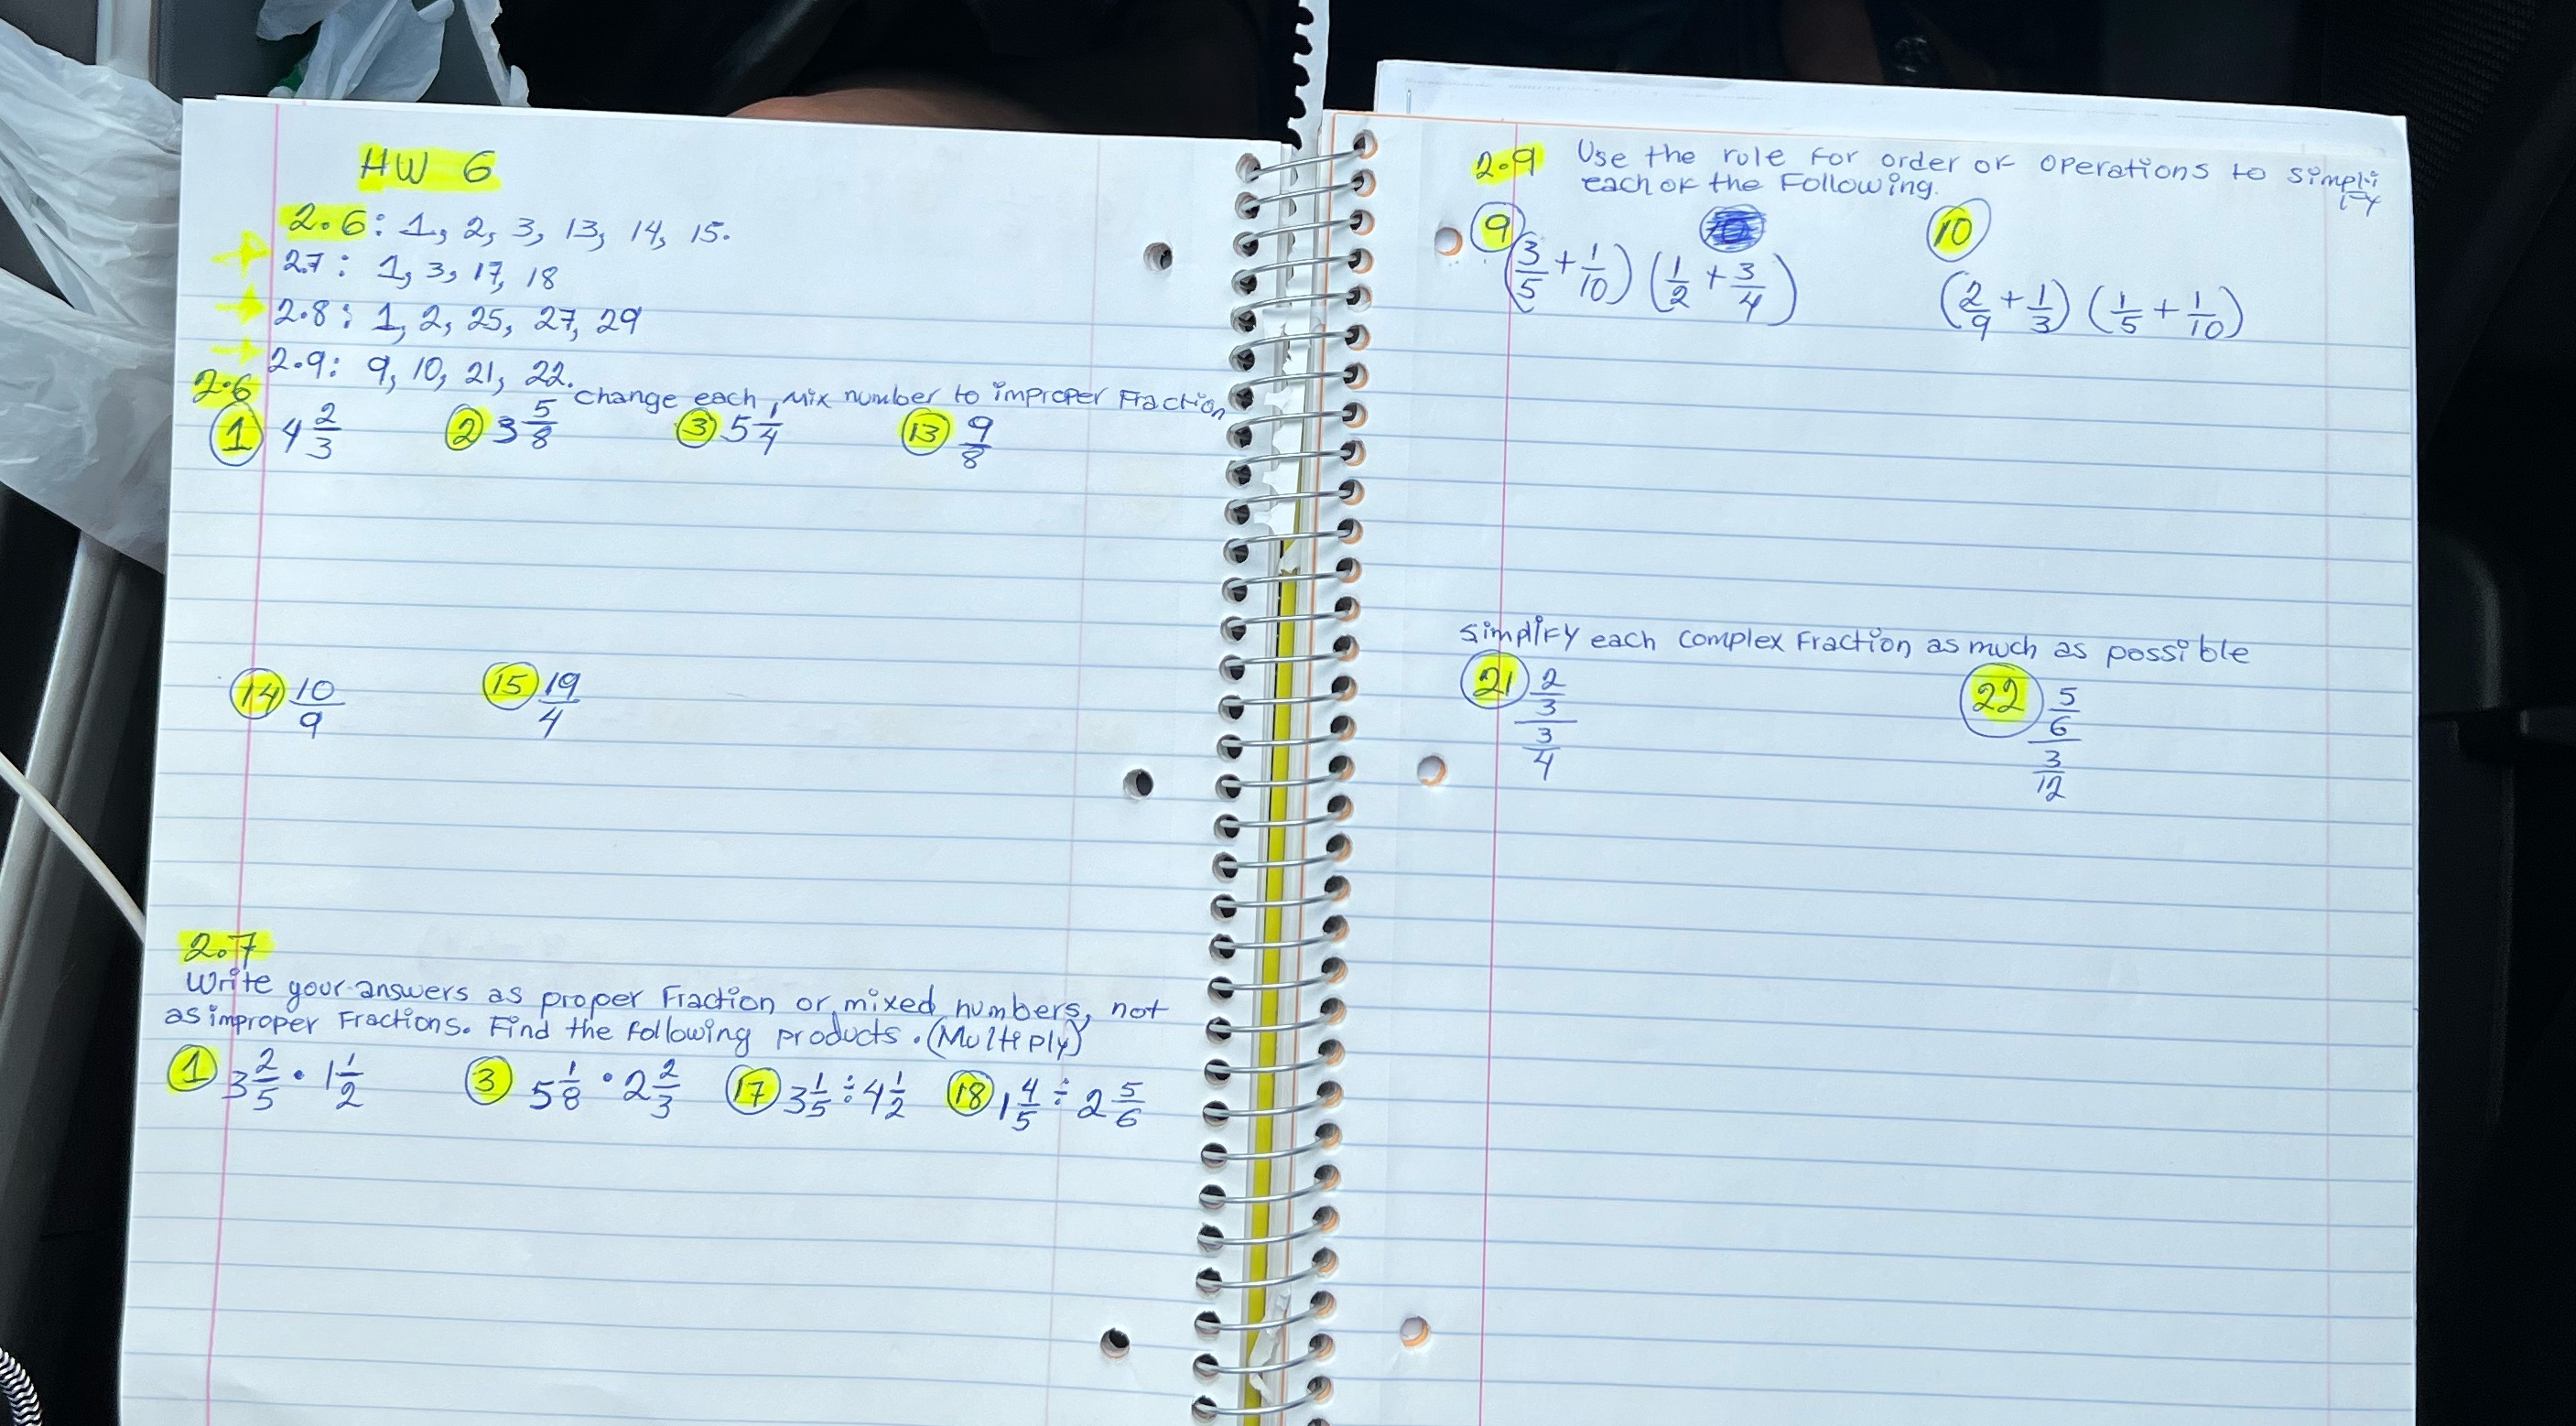 HW 6
2.6: 1, 2, 3, 13, 14, 15.
2.7: 1, 3, 17, 18
2.8: 1, 2, 25, 27, 29
2.9: 9, 10, 21, 22.
2.6 change each mix number to improper Fraction
1 4 2/3 2 3 5/8 3 5 1/4 13 9/8
14 10/9 15 19/4
2.7
Write your answers as proper Fraction or mixed numbers, not
as improper Fractions. Find the following products. (Multiply)
1 3 2/5 · 1 1/2 3 5 1/8 · 2 2/3 17 3 1/5 ÷ 4 1/2 18 1 4/5 ÷ 2 5/6
2.9 Use the rule for order of operations to simplify
each of the Following.
9 (3/5 + 1/10) (1/2 + 3/4) 10 (2/9 + 1/3) (1/5 + 1/10)
simplify each complex Fraction as much as possible
21 2/3 / 3/4 22 5/6 / 3/12